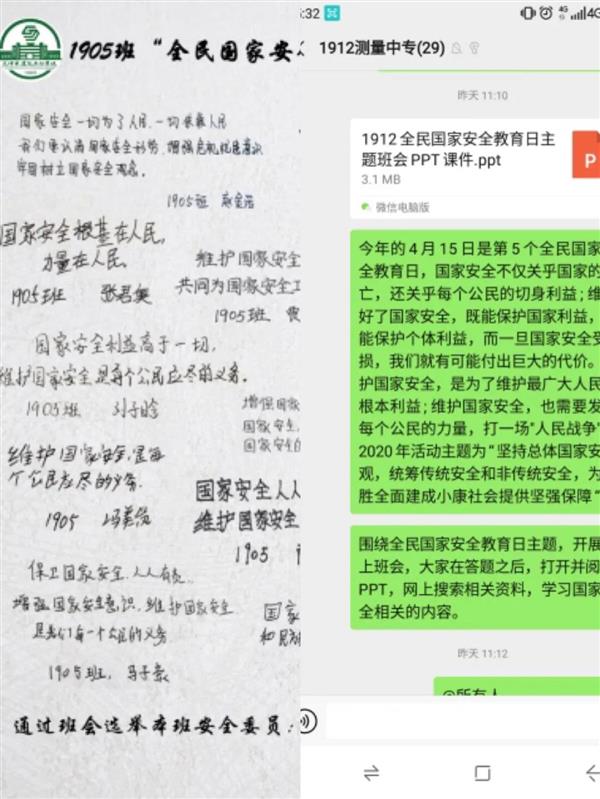 1905班“全民国家安
国家安全一切为了人民,一切依靠人民
我们要认清国家安全形势,增强危机忧患意识
牢固树立国家安全观念。
1905班
国家安全根基在人民,
力量在人民。
1905班
维护国家安全
共同为国家安全
1905班
国家安全利益高于一切,
维护国家安全是每个公民应尽的义务。
1905班 刘子晗
增强国家
国家安全
国家安全
维护国家安全,是每
个公民应尽的义务.
1905
国家安全人人
维护国家安全
1905
保卫国家安全,人人有责
增强国家安全意识,维护国家安全
是我们每一个公民的义务
1905班, 马子豪
国家
通过班会选举本班安全委员:
:32
4G
1912测量中专(29)
昨天 11:10
1912 全民国家安全教育日主
题班会 PPT 课件.ppt
3.1 MB
P
微信电脑版
今年的 4 月 15 日是第 5 个全民国家
全教育日,国家安全不仅关乎国家的
亡,还关乎每个公民的切身利益;维
好了国家安全,既能保护国家利益,
能保护个体利益,而一旦国家安全受
损,我们就有可能付出巨大的代价。
护国家安全,是为了维护最广大人民
根本利益;维护国家安全,也需要发
每个公民的力量,打一场“人民战争”
2020 年活动主题为“坚持总体国家安
观,统筹传统安全和非传统安全,为
胜全面建成小康社会提供坚强保障“
围绕全民国家安全教育日主题,开展
上班会,大家在答题之后,打开并阅
PPT,网上搜索相关资料,学习国家
全相关的内容。
昨天 11:12
@所有人